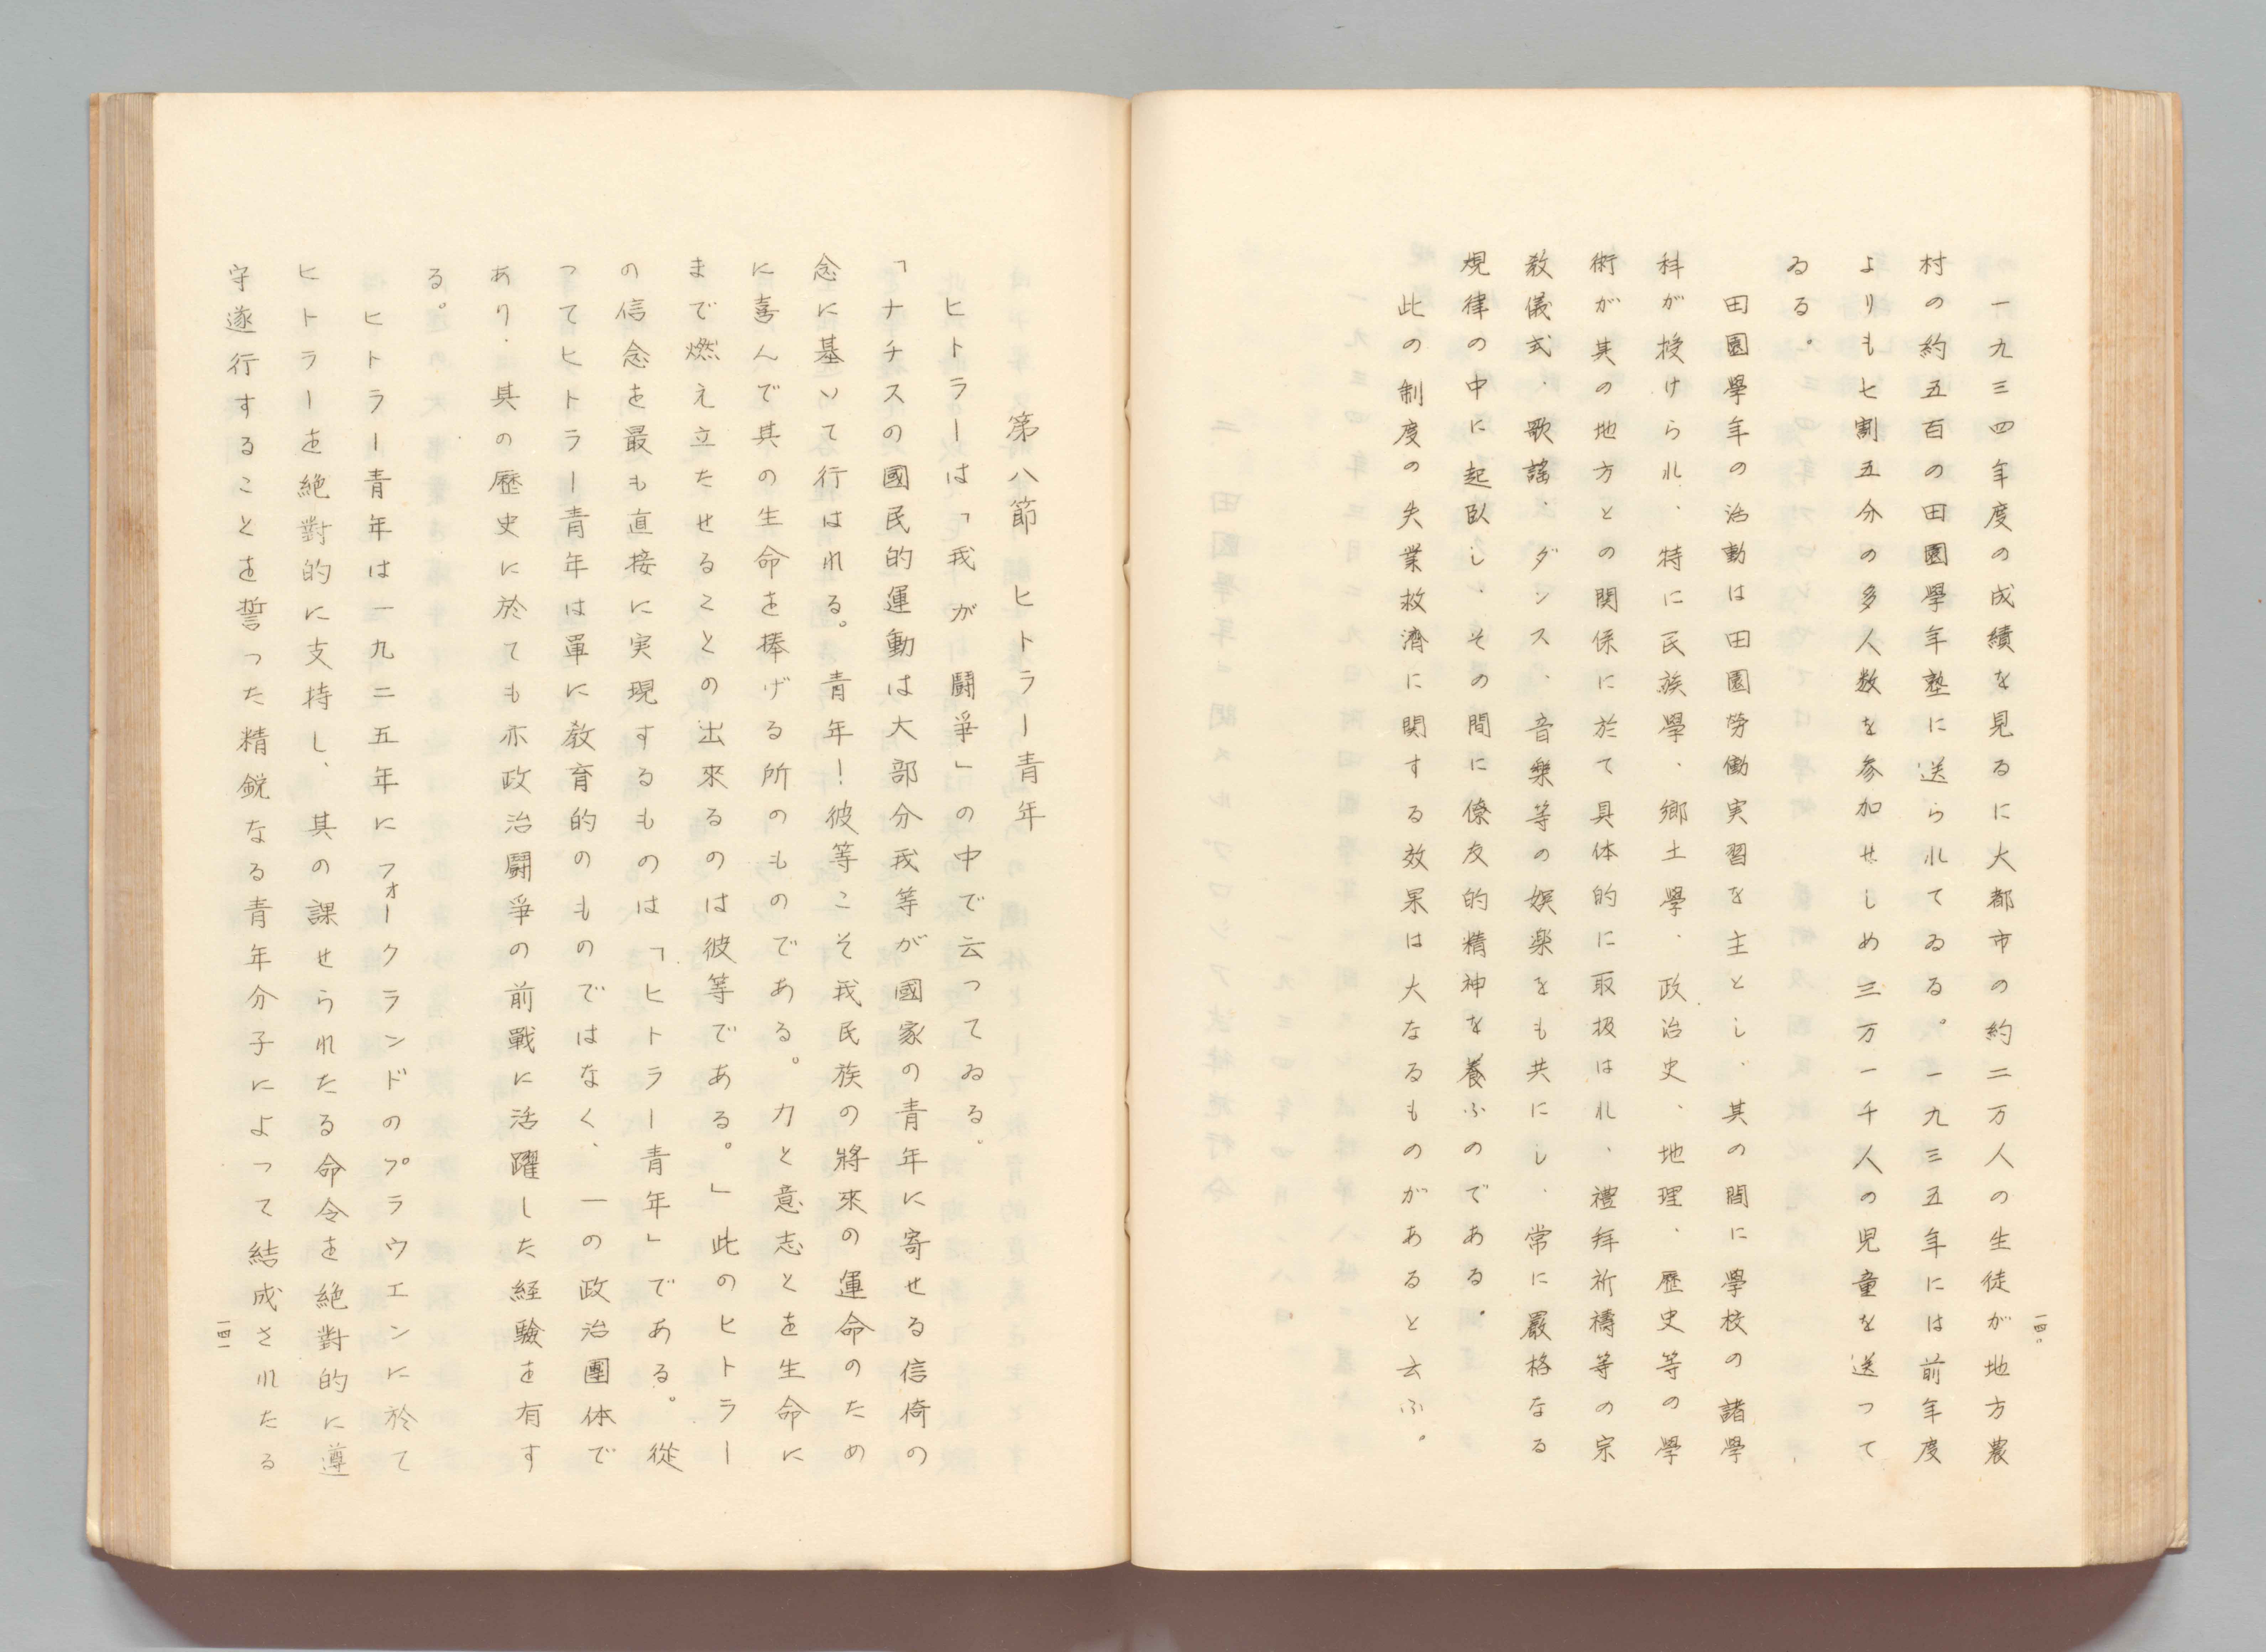 一九三四年度の成績を見るに大都市の約二万人の生徒が地方農
村の約五百の田園學年塾に送られてゐる。一九三五年には前年度
よりも七割五分の多人数を参加せしめ三万一千人の児童を送つて
ゐる。
田園學年の活動は田園労働実習を主とし、其の間に學校の諸學
科が授けられ、特に民族學、郷土學、政治史、地理、歴史等の學
術が其の地方との関係に於て具体的に取扱はれ、禮拜祈禱等の宗
教儀式、歌謡、ダンス、音楽等の娯楽をも共にし、常に嚴格なる
規律の中に起臥し、その間に僚友的精神を養ふのである。
此の制度の失業救濟に関する效果は大なるものがあると云ふ。
一四〇
第八節 ヒトラー青年
ヒトラーは「我が闘爭」の中で云つてゐる。
「ナチスの國民的運動は大部分我等が國家の青年に寄せる信倚の
念に基いて行はれる。青年！彼等こそ我民族の將來の運命のため
に喜んで其の生命を捧げる所のものである。力と意志とを生命に
まで燃え立たせることの出來るのは彼等である。」此のヒトラー
の信念を最も直接に実現するものは「ヒトラー青年」である。從
つてヒトラー青年は單に教育的のものではなく、一の政治團体で
あり、其の歷史に於ても亦政治闘爭の前戰に活躍した経驗を有す
る。
ヒトラー青年は一九二五年にフォークランドのプラウエンに於て
ヒトラーを絶對的に支持し、其の課せられたる命令を絶對的に遵
守遂行することを誓つた精鋭なる青年分子によつて結成されたる
一四一